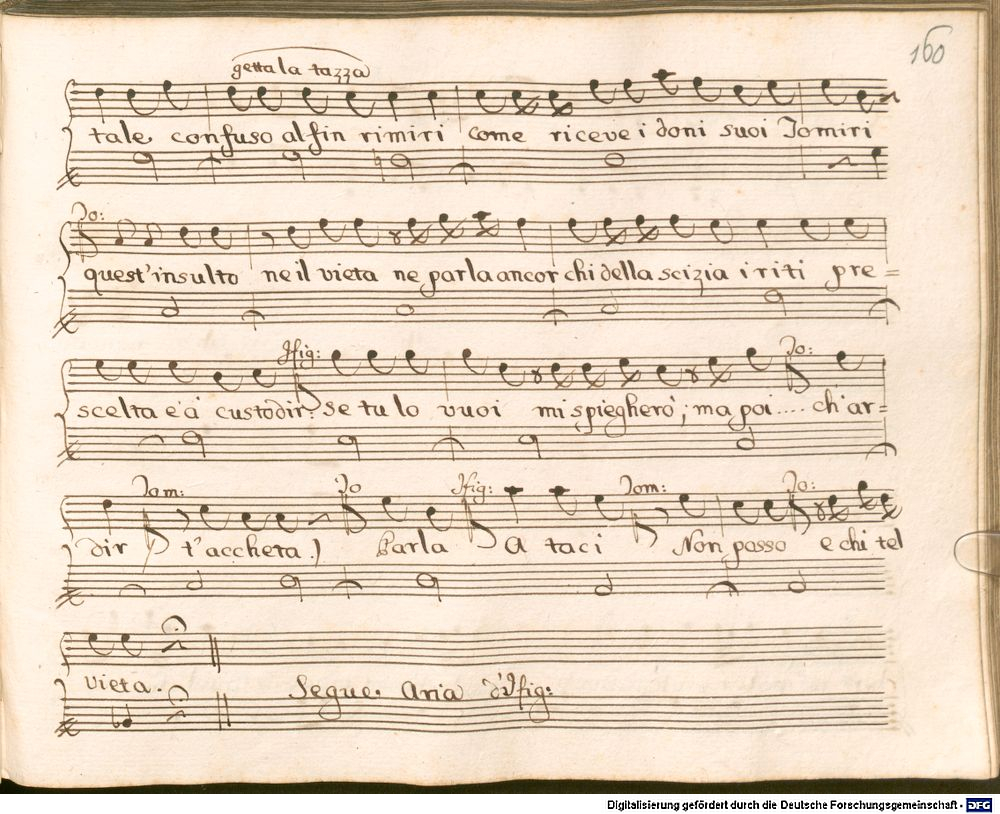 160
getta la tazza
tale confuso alfin rimiri come riceve i doni suoi Tomiri
To:
quest' insulto ne il vieta ne parla ancor chi della scizia i riti pre=
Ifig: To:
scelta è à custodir. se tu lo vuoi mi spiegherò; ma poi.... ch'ar=
Tom: To Ifig: Tom: To:
dir t'accheta.) Parla A taci Non posso e chi tel
vieta.
Segue Aria d'Ifig:
Digitalisierung gefördert durch die Deutsche Forschungsgemeinschaft - DFG